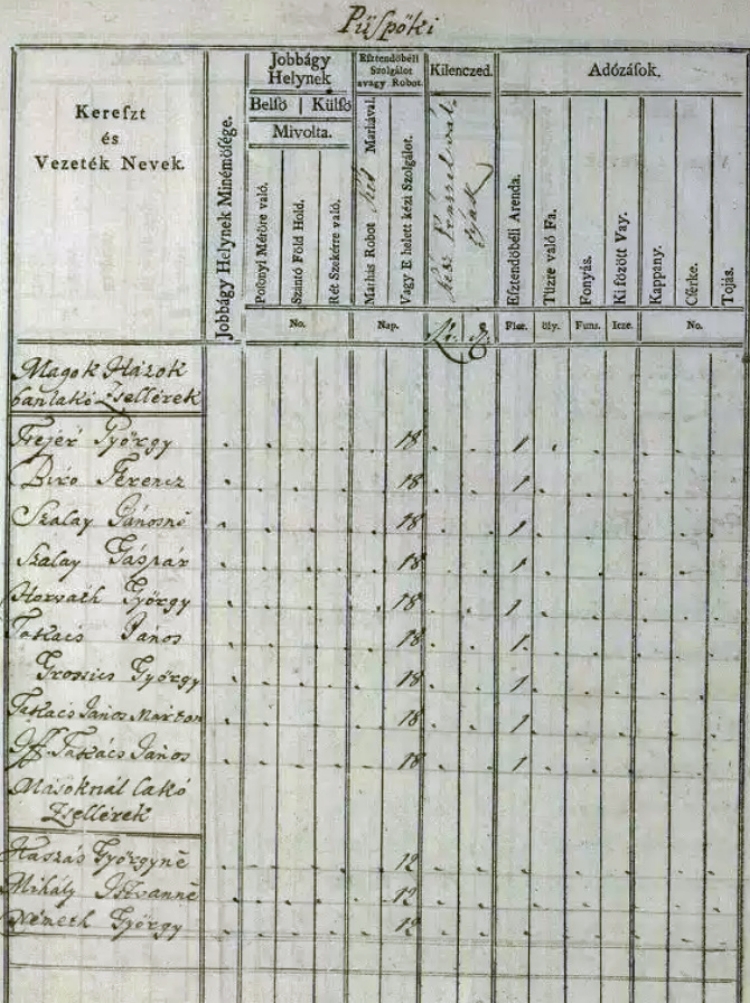 Püspöki
Kereſzt
és
Vezeték Nevek.
Jobbágy Helynek Minémöſége.
Jobbágy
Helynek
Belſö | Külſö
Mivolta.
Poſonyi Méröre való.
Szántó Föld Hold.
Rét Szekérre való.
Eſztendöbéli
Szolgálot
avagy Robot.
Marhás Robot két Marhával.
Vagy E helett kézi Szolgálot.
Kilenczed.
Adózáſok.
Eſztendöbéli Arenda.
Tüzre való Fa.
Fonyás.
Ki fözött Vay.
Kappany.
Cſirke.
Tojás.
No. Nap. Flor. öly. Funt. Icze. No.
Magok Házok
ban lakó Zsellérek
Frejer György 18 1
Biró Ferencz 18 1
Szalay Jánosné 18 1
Szalay Gáspár 18 1
Horvath György 18 1
Takács János 18 1
Grossics György 18 1
Takács János Márton 18 1
Iff. Takács János 18 1
Másoknál lakó
Zsellérek
György​né 12
Mihály Istvanné 12
Németh György 12